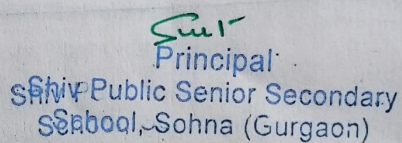 Principal
Shiv Public Senior Secondary
School, Sohna (Gurgaon)